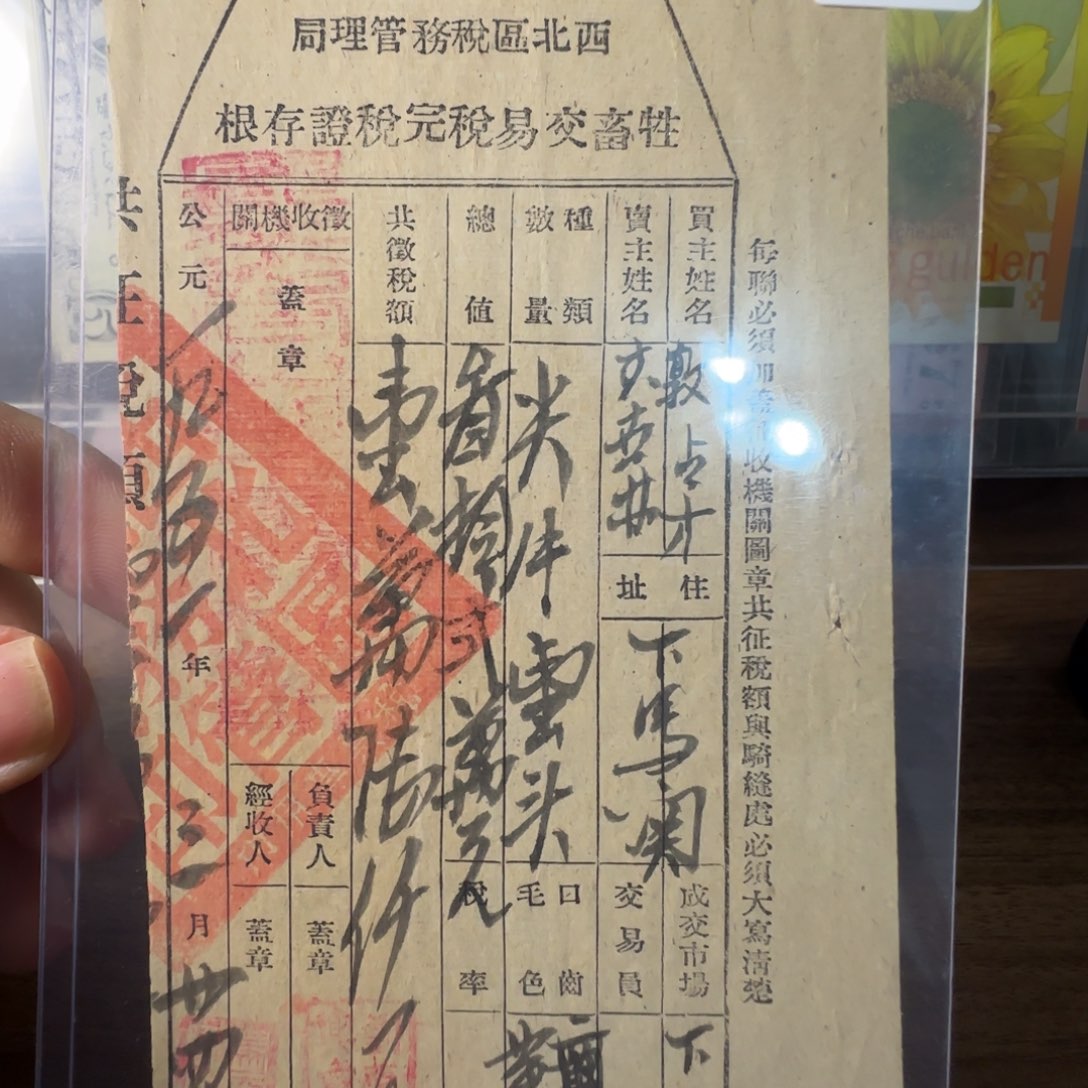 西北區稅務管理局
牲畜交易稅完稅證存根
每聯必須加蓋
收機關圖章共征稅額與騎縫處必須大寫清楚
買主姓名
占才
住址
下馬關
成交市場
下
賣主姓名
交易員
種類
數量
尖牛壹头
口齒
毛色
總值
拾弍萬元
稅率
共徵稅額
壹萬陆仟
徵收機關
蓋章
負責人
蓋章
經收人
蓋章
公元
一九五一
年
三
月
廿四
共征稅額
gulden